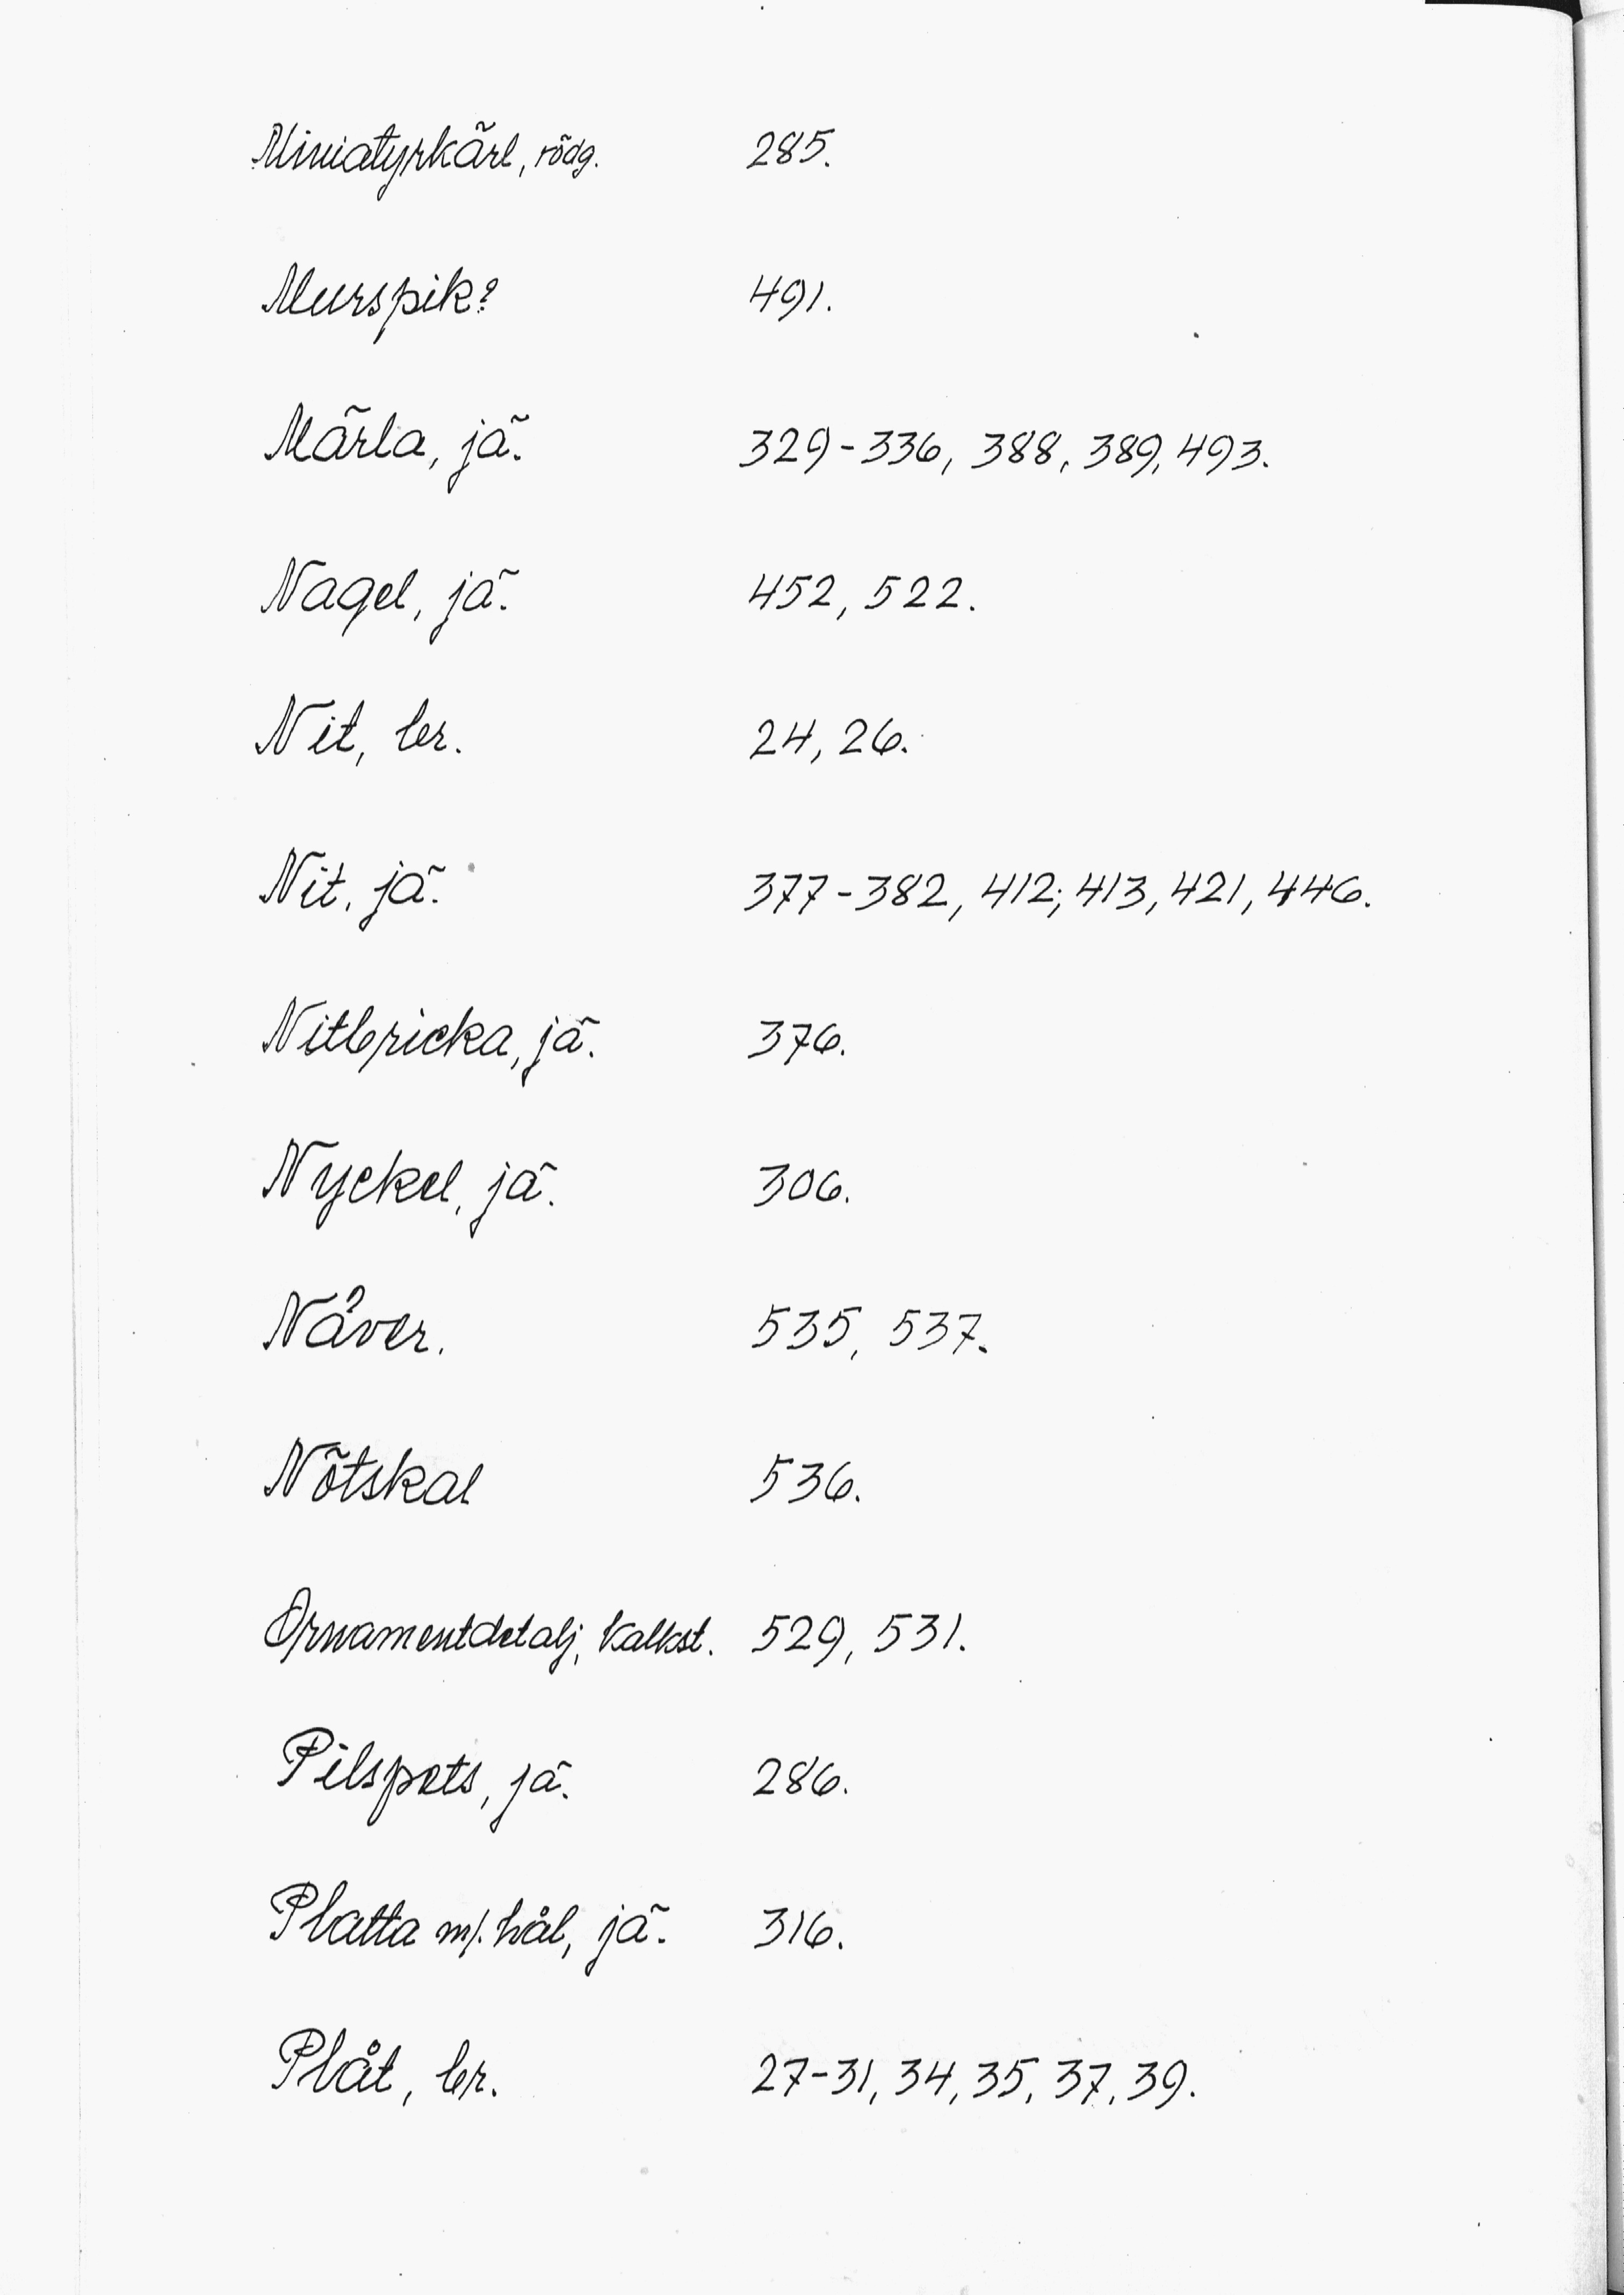 Miniatyrkärl, rödg. 285.
Murspik? 491.
Märla, jä. 329-336, 388, 389, 493.
Nagel, jä. 452, 522.
Nit, br. 24, 26.
Nit, jä. 377-382, 412; 413, 421, 446.
Nitbricka, jä. 376.
Nyckel, jä. 306.
Nåver. 535, 537.
Nötskal 536.
Ornamentdetalj, kalkst. 529, 531.
Pilspets, jä. 286.
Platta m/. hål, jä. 316.
Plåt, br. 27-31, 34, 35, 37, 39.